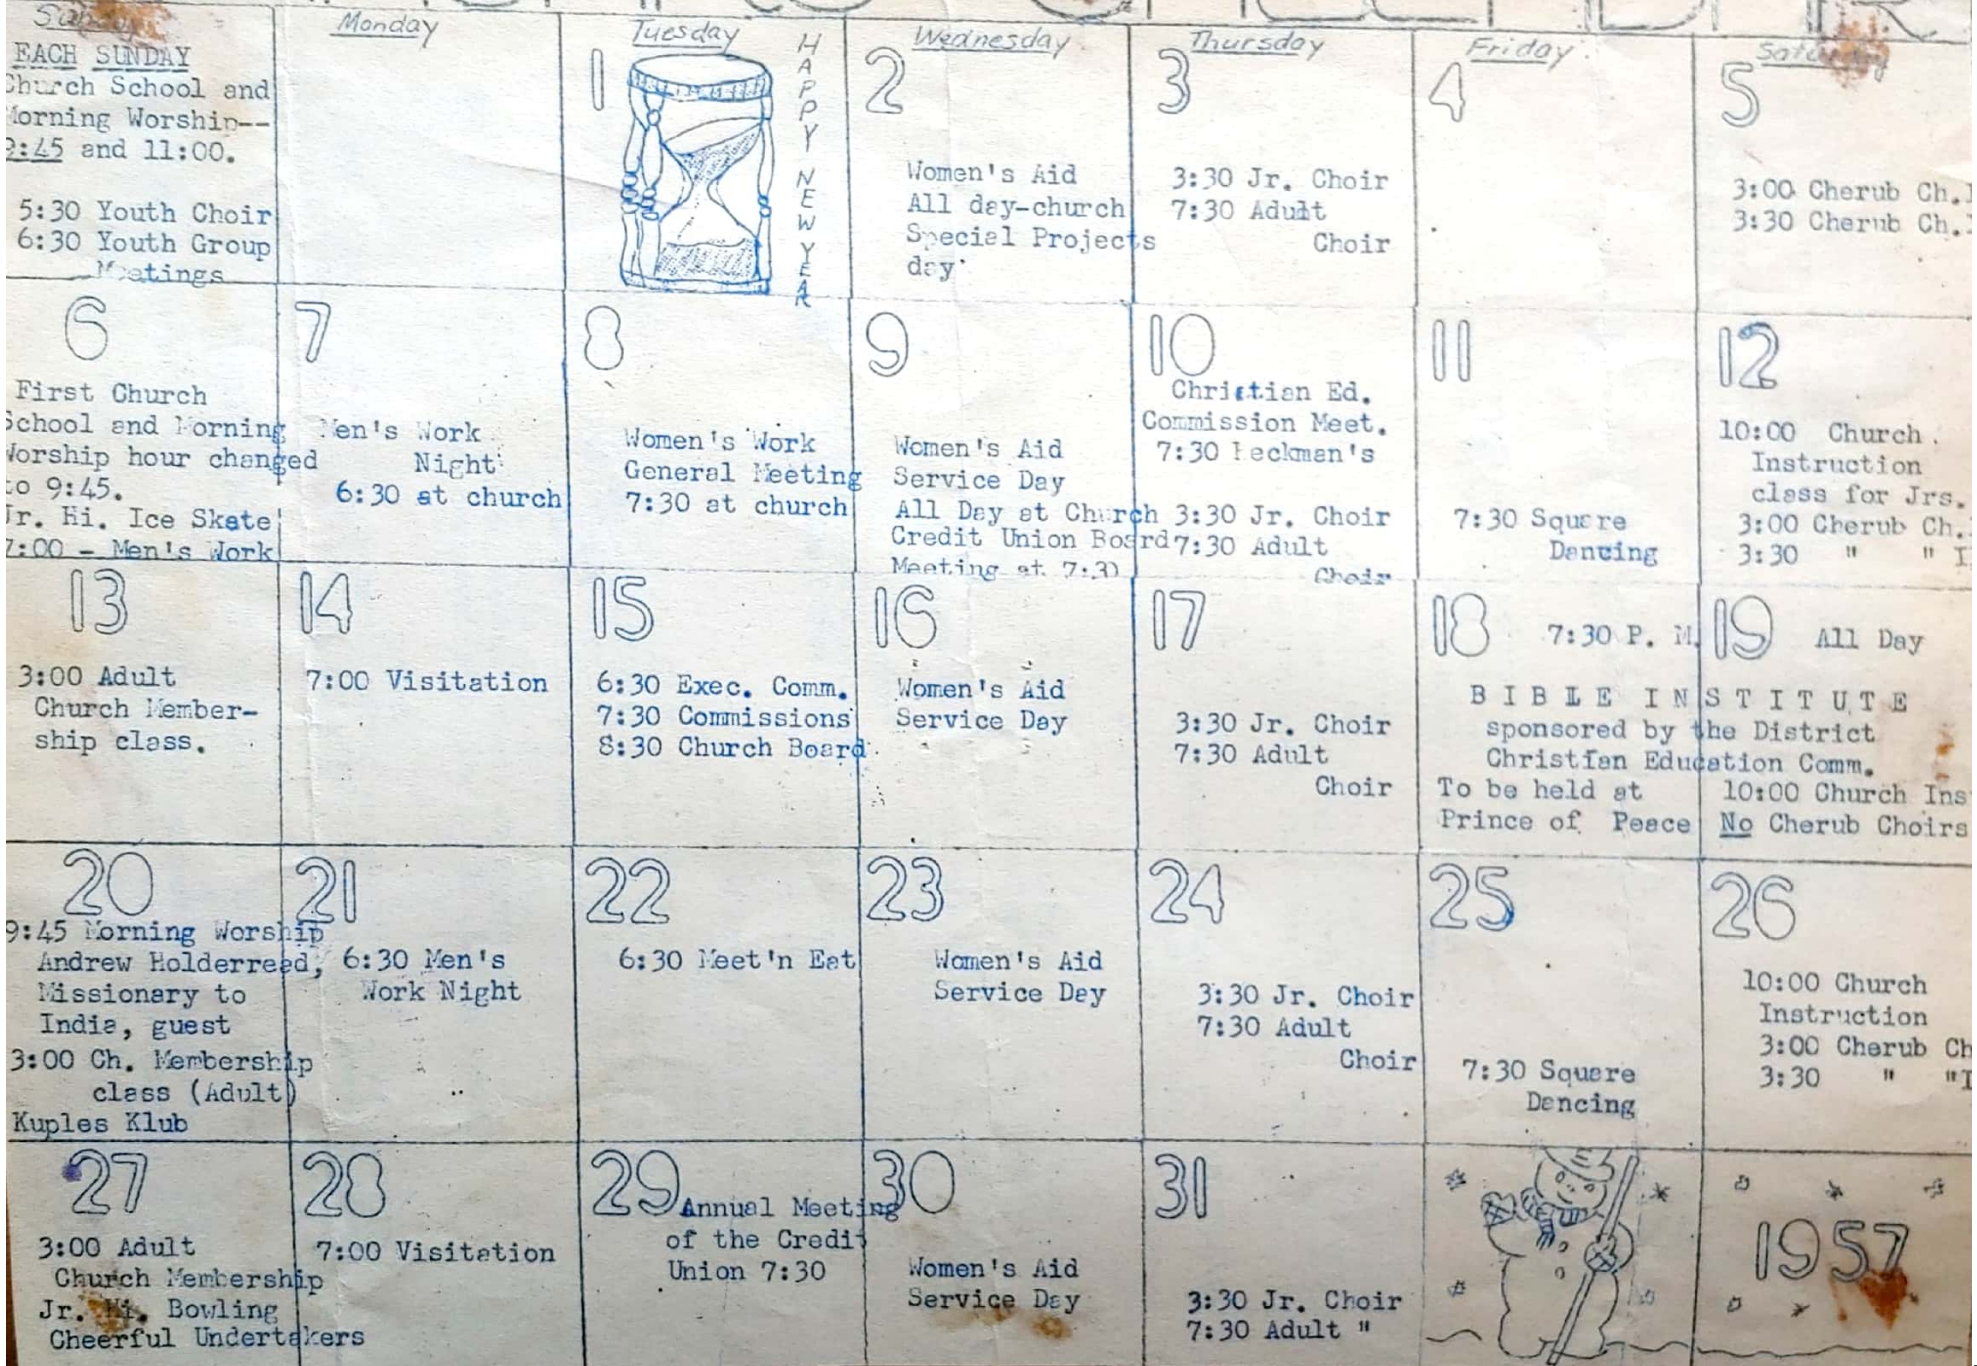 Sunday
Monday
Tuesday
Wednesday
Thursday
Friday
Saturday
EACH SUNDAY
Church School and
Morning Worship--
9:45 and 11:00.
5:30 Youth Choir
6:30 Youth Group
Meetings
1
HAPPY NEW YEAR
2
Women's Aid
All day-church
Special Projects
day
3
3:30 Jr. Choir
7:30 Adult
Choir
4
5
3:00 Cherub Ch.
3:30 Cherub Ch.
6
First Church
School and Morning
Worship hour changed
to 9:45.
Jr. Hi. Ice Skate
7:00 - Men's Work
7
Men's Work
Night
6:30 at church
8
Women's Work
General Meeting
7:30 at church
9
Women's Aid
Service Day
All Day at Church
Credit Union Board
Meeting at 7:30
10
Christian Ed.
Commission Meet.
7:30 Heckman's
3:30 Jr. Choir
7:30 Adult
Choir
11
7:30 Square
Dancing
12
10:00 Church
Instruction
class for Jrs.
3:00 Cherub Ch.
3:30 " " I
13
3:00 Adult
Church Member-
ship class.
14
7:00 Visitation
15
6:30 Exec. Comm.
7:30 Commissions
8:30 Church Board
16
Women's Aid
Service Day
17
3:30 Jr. Choir
7:30 Adult
Choir
18 7:30 P. M.
19 All Day
BIBLE INSTITUTE
sponsored by the District
Christian Education Comm.
To be held at
Prince of Peace
10:00 Church Ins
No Cherub Choirs
20
9:45 Morning Worship
Andrew Holderreed,
Missionary to
India, guest
3:00 Ch. Membership
class (Adult)
Kuples Klub
21
6:30 Men's
Work Night
22
6:30 Meet'n Eat
23
Women's Aid
Service Day
24
3:30 Jr. Choir
7:30 Adult
Choir
25
7:30 Square
Dancing
26
10:00 Church
Instruction
3:00 Cherub Ch
3:30 " "I
27
3:00 Adult
Church Membership
Jr. Hi. Bowling
Cheerful Undertakers
28
7:00 Visitation
29
Annual Meeting
of the Credit
Union 7:30
30
Women's Aid
Service Day
31
3:30 Jr. Choir
7:30 Adult "
1957